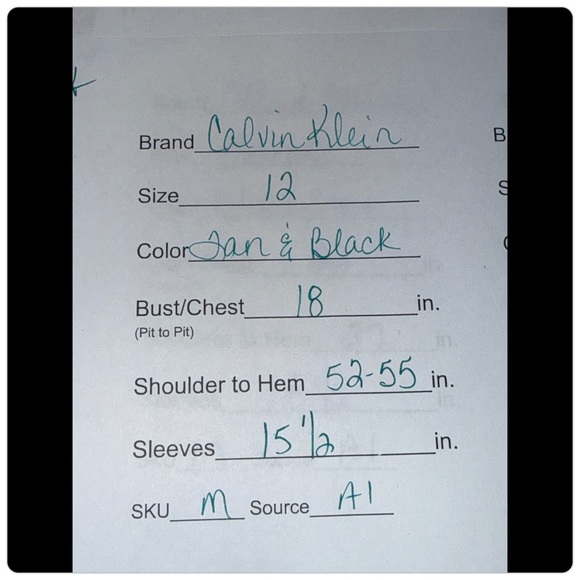 Brand Calvin Klein
Size 12
Color Tan & Black
Bust/Chest 18 in.
(Pit to Pit)
Shoulder to Hem 52-55 in.
Sleeves 15 1/2 in.
SKU M Source A1
B
S